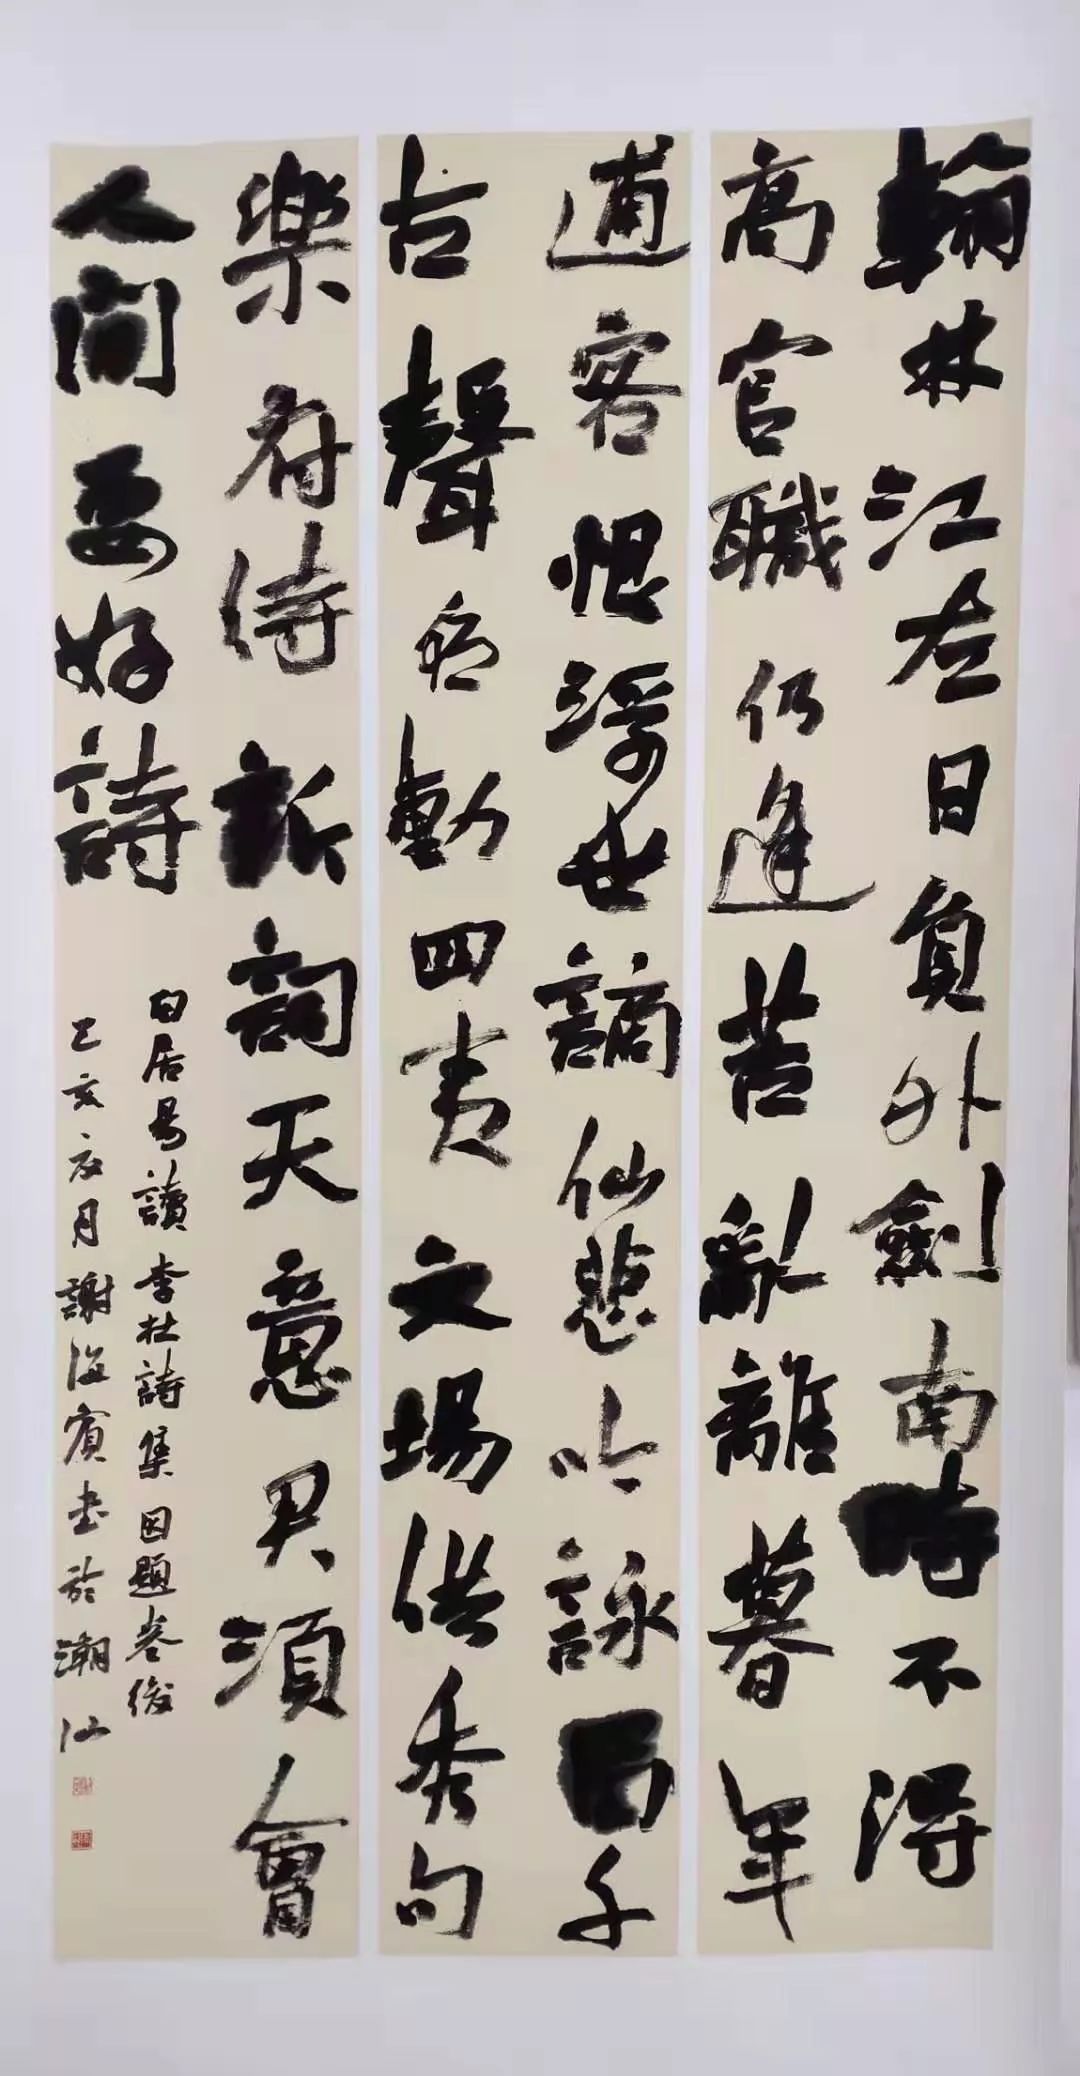 翰林江左日員外劍南時不得
高官職仍逢苦亂離暮年
逋客恨浮世謫仙悲吟詠留千
古聲名動四夷文場供秀句
樂府待新詞天意君須會
人間要好詩
白居易讀李杜詩集因題卷後
己亥月謝海賓書於潮汕